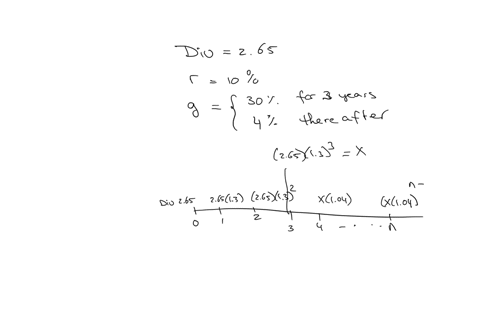 Div = 2.65
r = 10%
g = { 30% for 3 years
4% there after
(2.65)(1.3)³ = X
n-
Div 2.65 2.65(1.3) (2.65)(1.3)² X(1.04) (X(1.04)
0 1 2 3 4 - . . . n